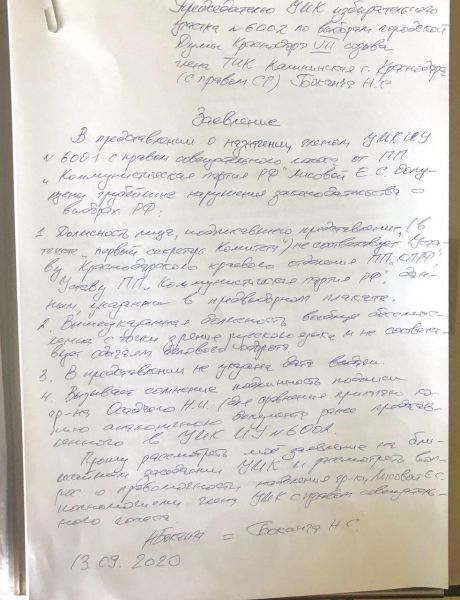 Председателю УИК избирательного
участка №6002 по выборам городской
Думы Краснодара VII созыва
члена ТИК Калининская г. Краснодара
(с правом СГ) Боканга Н.С
Заявление
В представлении о назначении членом УИК ИУ
№6001 с правом совещательного голоса от ПП
"Коммунистическая партия РФ" Лисовой Е.С. допу-
щены грубейшие нарушения законодательства о
выборах РФ:
1. Должность лица, подписавшего представление, (в
тексте "первый секретарь комитета") не соответствует Уста-
ву Краснодарского краевого отделения ПП "КПРФ",
Уставу ПП "Коммунистическая партия РФ", дан-
ным, указанным в предвыборном плакате.
2. Вышеуказанная должность вообще бессмыс-
ленна с точки зрения русского языка и не соответс-
вует обычаям делового оборота.
3. В представлении не указана дата выдачи.
4. Вызывает сомнение подлинность подписи
гр-на Осадчего Н.И. (для сравнения прилагаю ко-
пию аналогичного документа ранее представ-
ленного в УИК ИУ №6002.
Прошу рассмотреть моё заявление на бли-
жайшем заседании УИК и рассмотреть воп-
рос о правомочности наделения гр-ки Лисовой Е.С.
полномочиями члена УИК с правом совещатель-
ного голоса
Боканга Н.С
13.09.2020